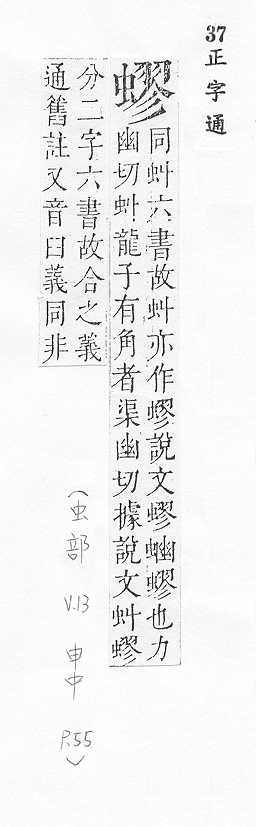 37 正字通
蟉
同虯六書故虯亦作蟉說文蟉蚴蟉也力
幽切虯龍子有角者渠幽切據說文虯蟉
分二字六書故合之義
通舊註又音臼義同非
(虫部 V.13 申中 P.55)